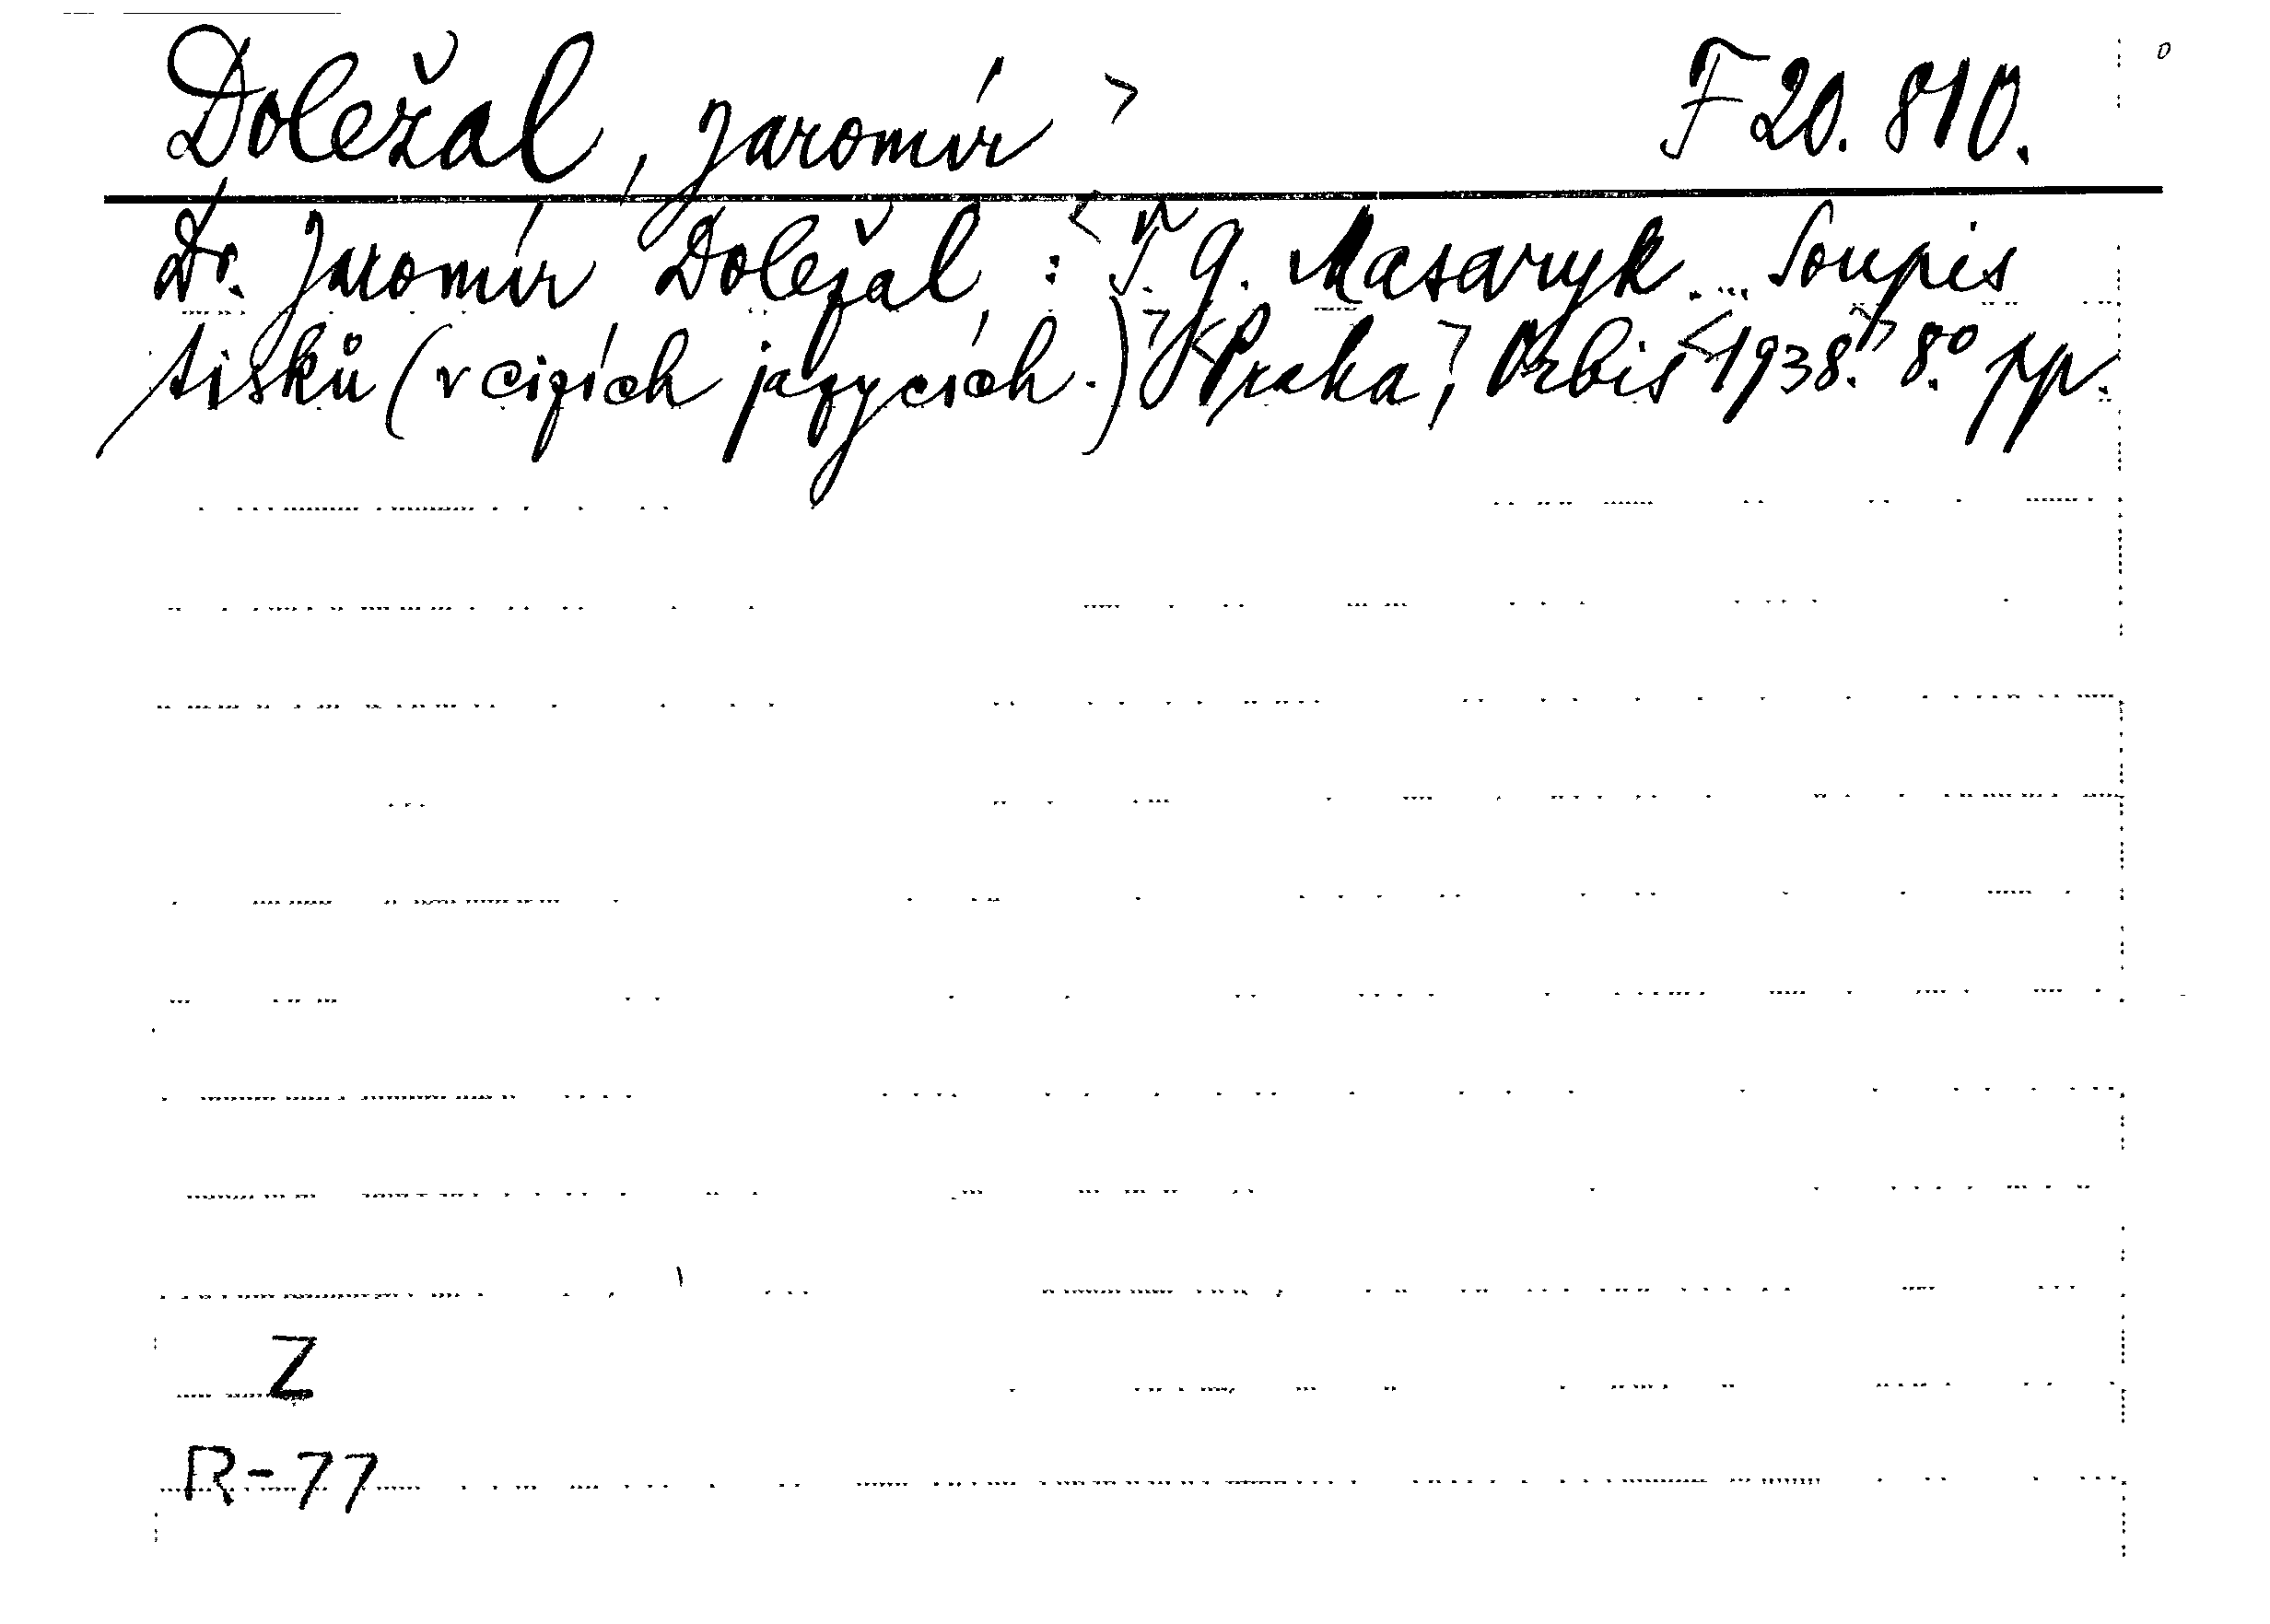 Doležal, Jaromír> F 20.810.
Dr. Jaromír Doležal: <T. G. Masaryk ... Soupis
tisků (v cizích jazycích.)> <Praha>, Orbis <1938.> 8.° pp.
Z
R-77